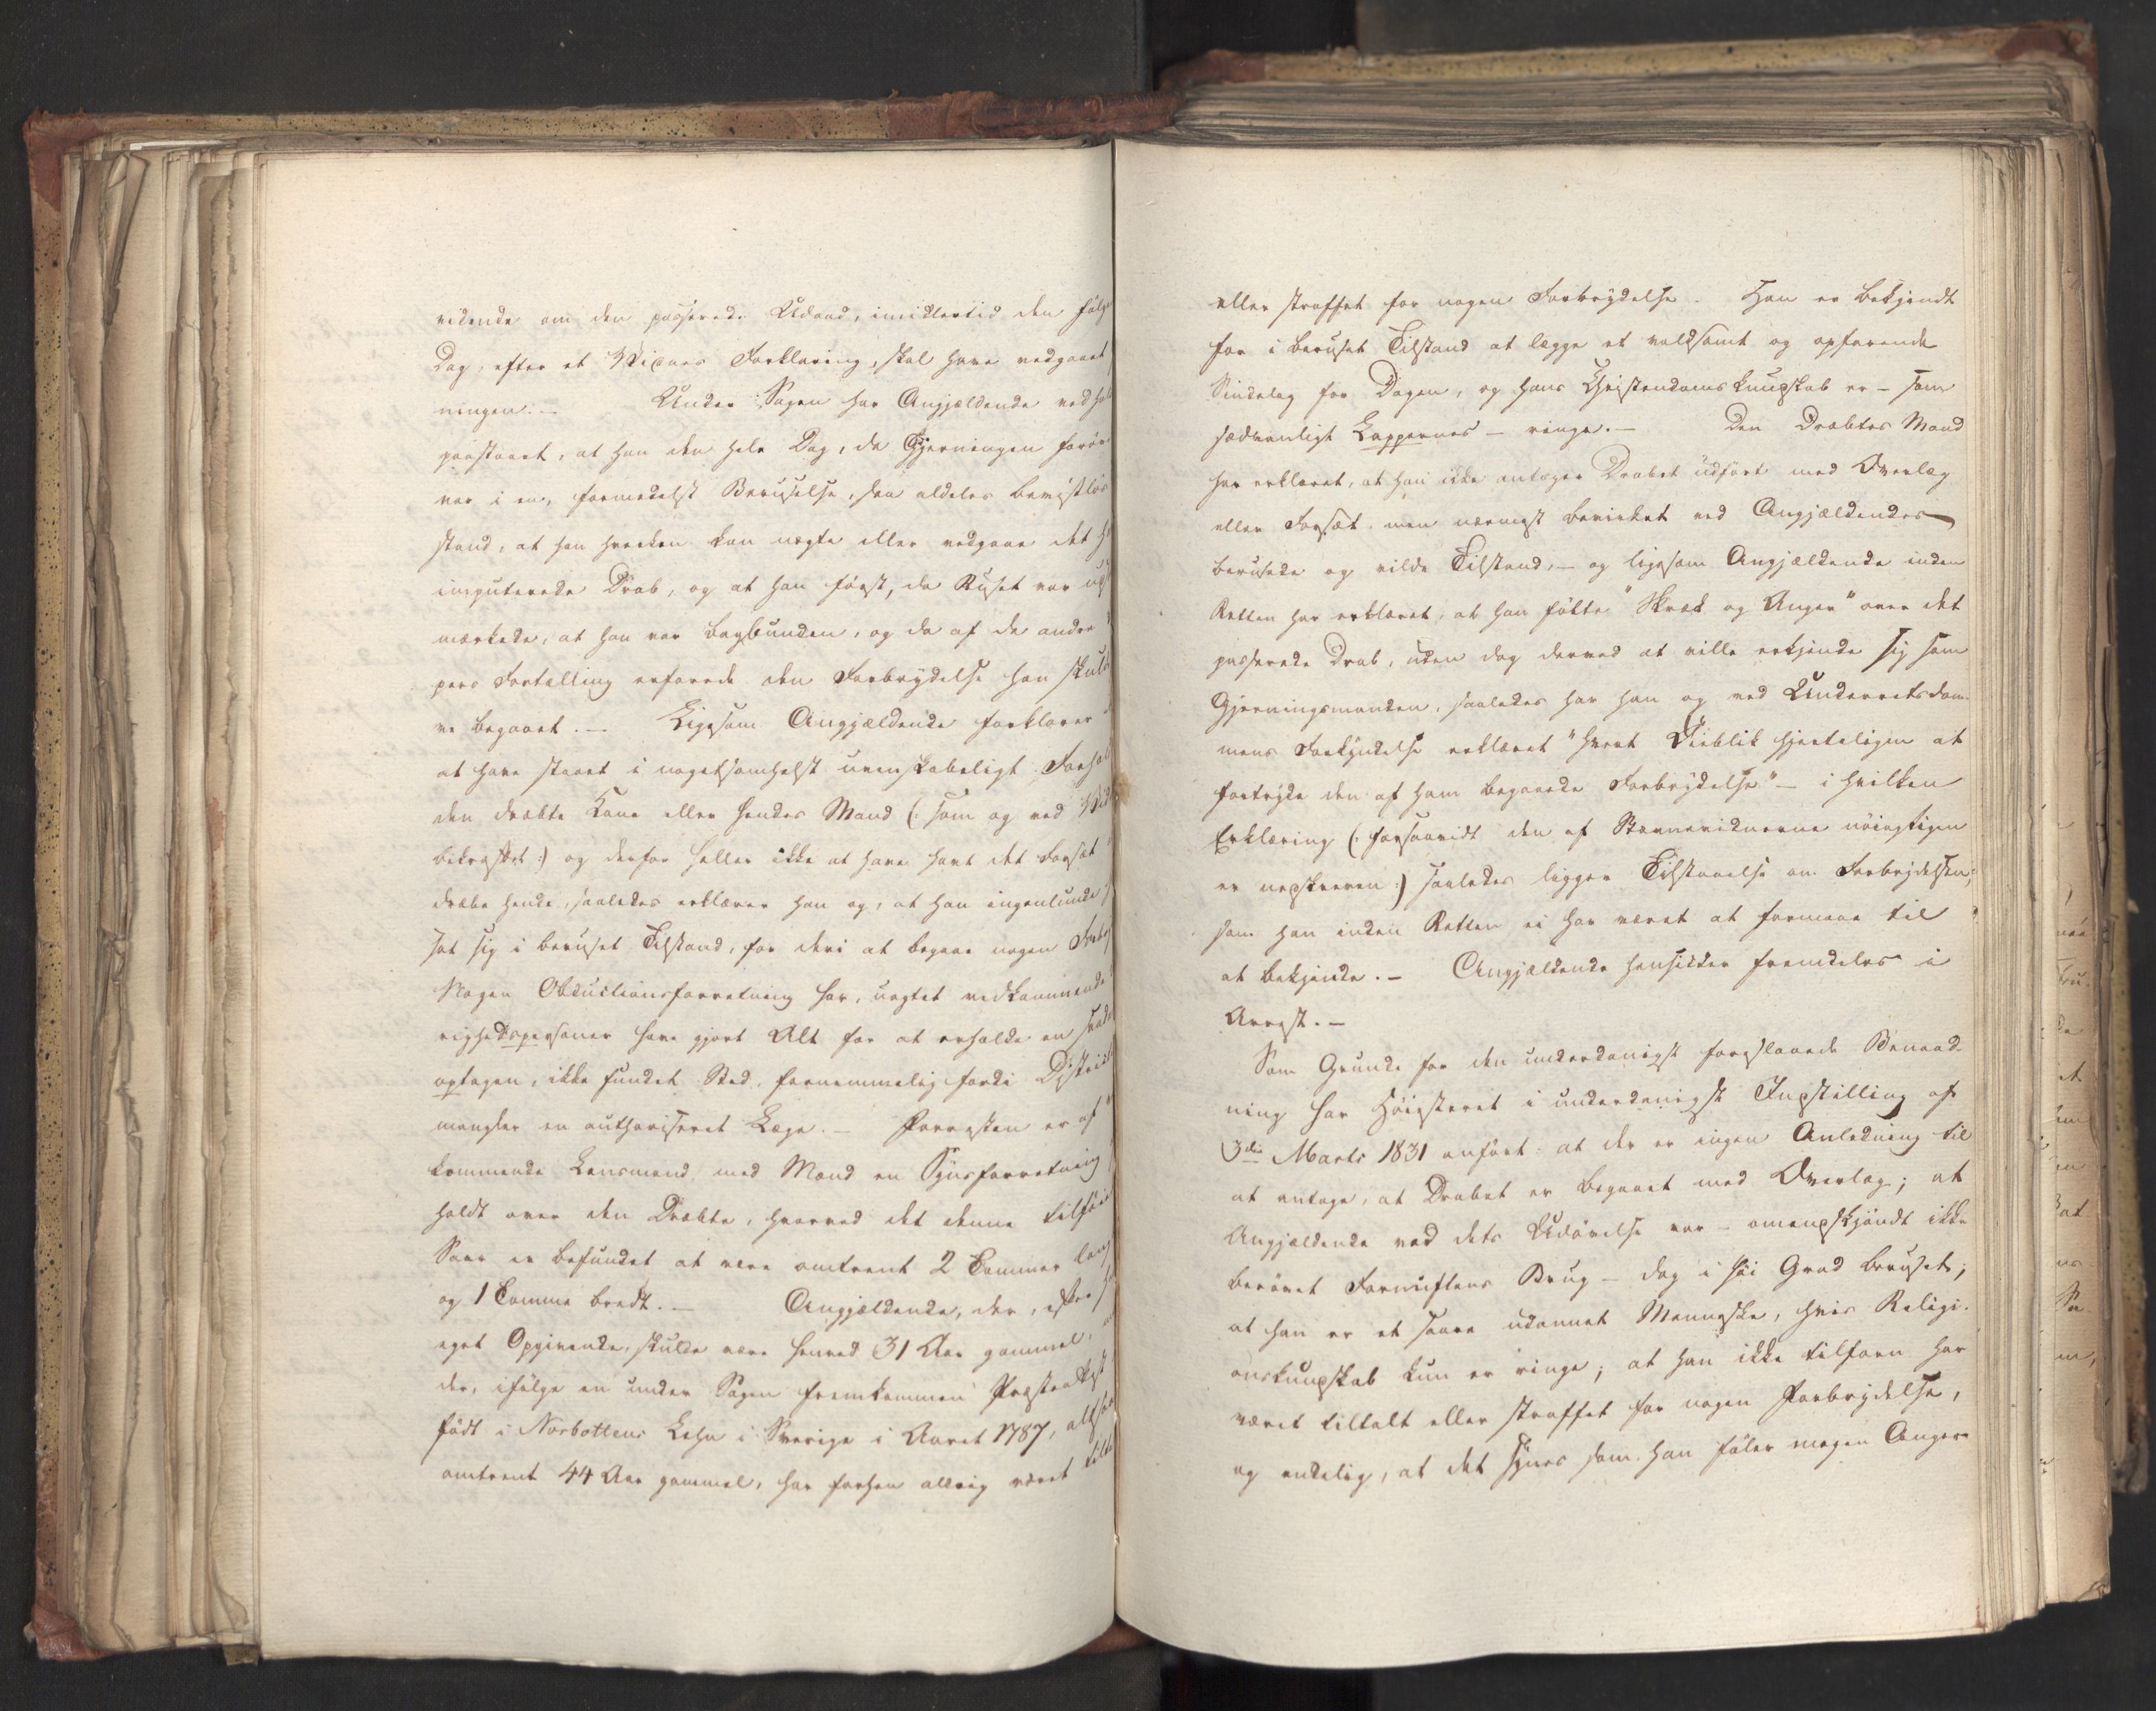 vidende om den passerede Udaad, imidlertid den følge
Dag, efter et Vidnes Forklaring, skal have vedgaaet
ningen. — Under Sagen har Angjældende vedhol
paastaaet, at han den hele Dag, da Gjerningen forøv
var i en, formedelst Beruselse, saa aldeles bevistløs
stand, at han hverken kan negte eller vedgaae det h
imputerede Drab, og at han først, da Ruset var ud
mærkede, at han var bagbunden, og da af de andre
pers Fortælling erfarede den Forbrydelse han skuld
ve begaaet. — Ligesom Angjældende forklarer
at have staaet i nogetsomhelst uvenskabeligt Forhol
den dræbte Kone eller hendes Mand (: som og ved Vid
bekræftet :) og derfor heller ikke at have havt det Forsæt
dræbe hende, saaledes erklærer han og, at han ingenlunde
sat sig i beruset Tilstand, for deri at begaae nogen Forbry
Nogen Obductionsforretning har, uagtet vedkommende
righedspersoner have gjort Alt for at erholde en saada
optagen, ikke fundet Sted, fornemmelig fordi District
mangler en authoriseret Læge. — Forresten er af
kommende Lensmand med Mænd en Synsforretning
holdt over den Dræbte, hvorved det denne tilføi
Saar er befundet at være omtrent 2 Tommer lang
og 1 Tomme bredt. — Angjældende, der, efter h
eget Opgivende, skulde være henved 31 Aar gammel,
der, ifølge en under Sagen fremkommen Præsteattest
født i Norbottens Lehn i Sverige i Aaret 1787, altsaa
omtrent 44 Aar gammel, har forhen aldrig været tilta
eller straffet for nogen Forbrydelse. Han er bekjendt
for i beruset Tilstand at lægge et voldsomt og opfarende
Sindelag for Dagen, og hans Christendomskundskab er — som
sædvanligt Lappernes — ringe. — Den Dræbtes Mand
har erklæret, at han ikke antager Drabet udført med Overlæg
eller Forsæt, men nærmest bevirket ved Angjældendes
berusede og vilde Tilstand, — og ligesom Angjældende inden
Retten har erklæret, at han følte "Skræk og Anger" over det
passerede Drab, uden dog derved at ville erkjende sig som
Gjerningsmanden, saaledes har han og ved Underretsdom-
mens Forkyndelse erklæret "hvert Øieblik hjerteligen at
fortryde den af ham begaaede Forbrydelse" — i hvilken
Erklæring (: forsaavidt den af Stævnevidnerne nøiagtigen
er nedskreven :) saaledes ligger Tilstaaelse om Forbrydelsen,
som han inden Retten ei har været at formaae til
at bekjende. — Angjældende hensidder fremdeles i
Arrest. —
Som Grunde for den underdanigst foreslaaede Benaad-
ning har Høiesteret i underdanigst Indstilling af
3die Marts 1831 anført: at der er ingen Anledning til
at antage, at Drabet er begaaet med Overlæg; at
Angjældende ved dets Udøvelse var — omendskjøndt ikke
berøvet Fornuftens Brug — dog i høi Grad beruset;
at han er et saare udannet Menneske, hvis Religi-
onskundskab kun er ringe; at han ikke tilforn har
været tiltalt eller straffet for nogen Forbrydelse,
og endelig, at det synes som han føler megen Anger